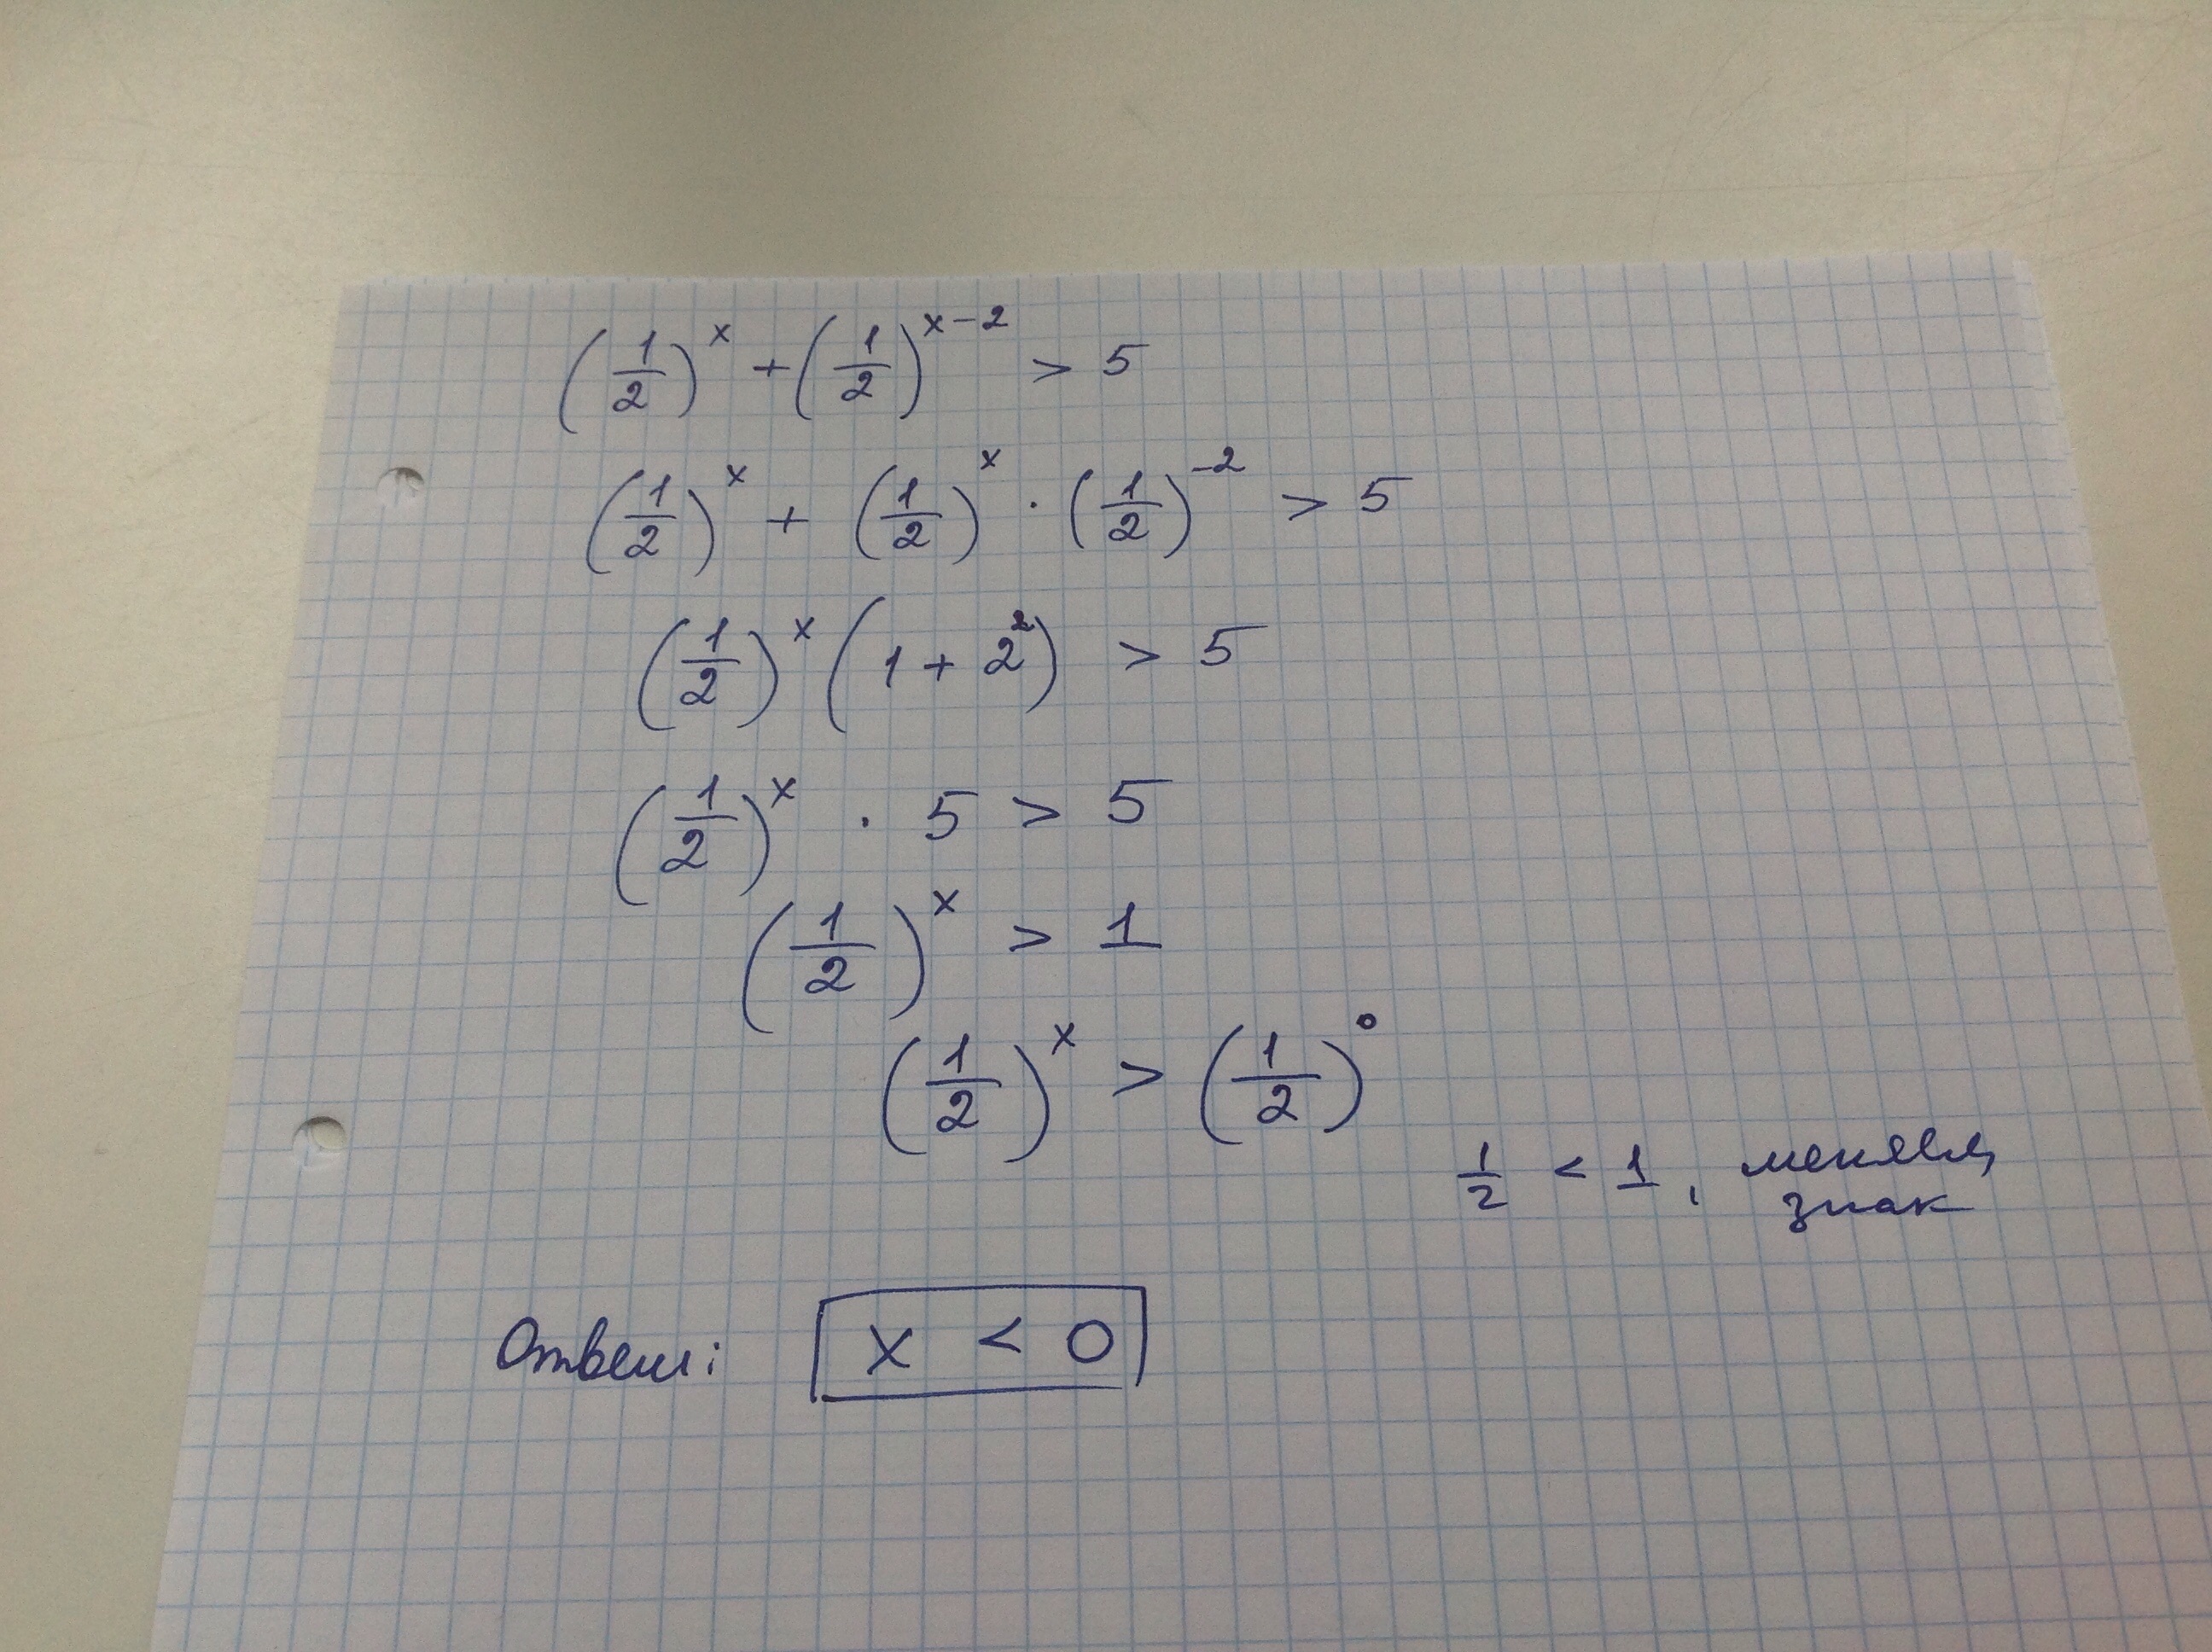 (1/2)^x + (1/2)^(x-2) > 5
(1/2)^x + (1/2)^x · (1/2)^(-2) > 5
(1/2)^x (1 + 2^2) > 5
(1/2)^x · 5 > 5
(1/2)^x > 1
(1/2)^x > (1/2)^0
1/2 < 1, меняем
знак
Ответ: x < 0